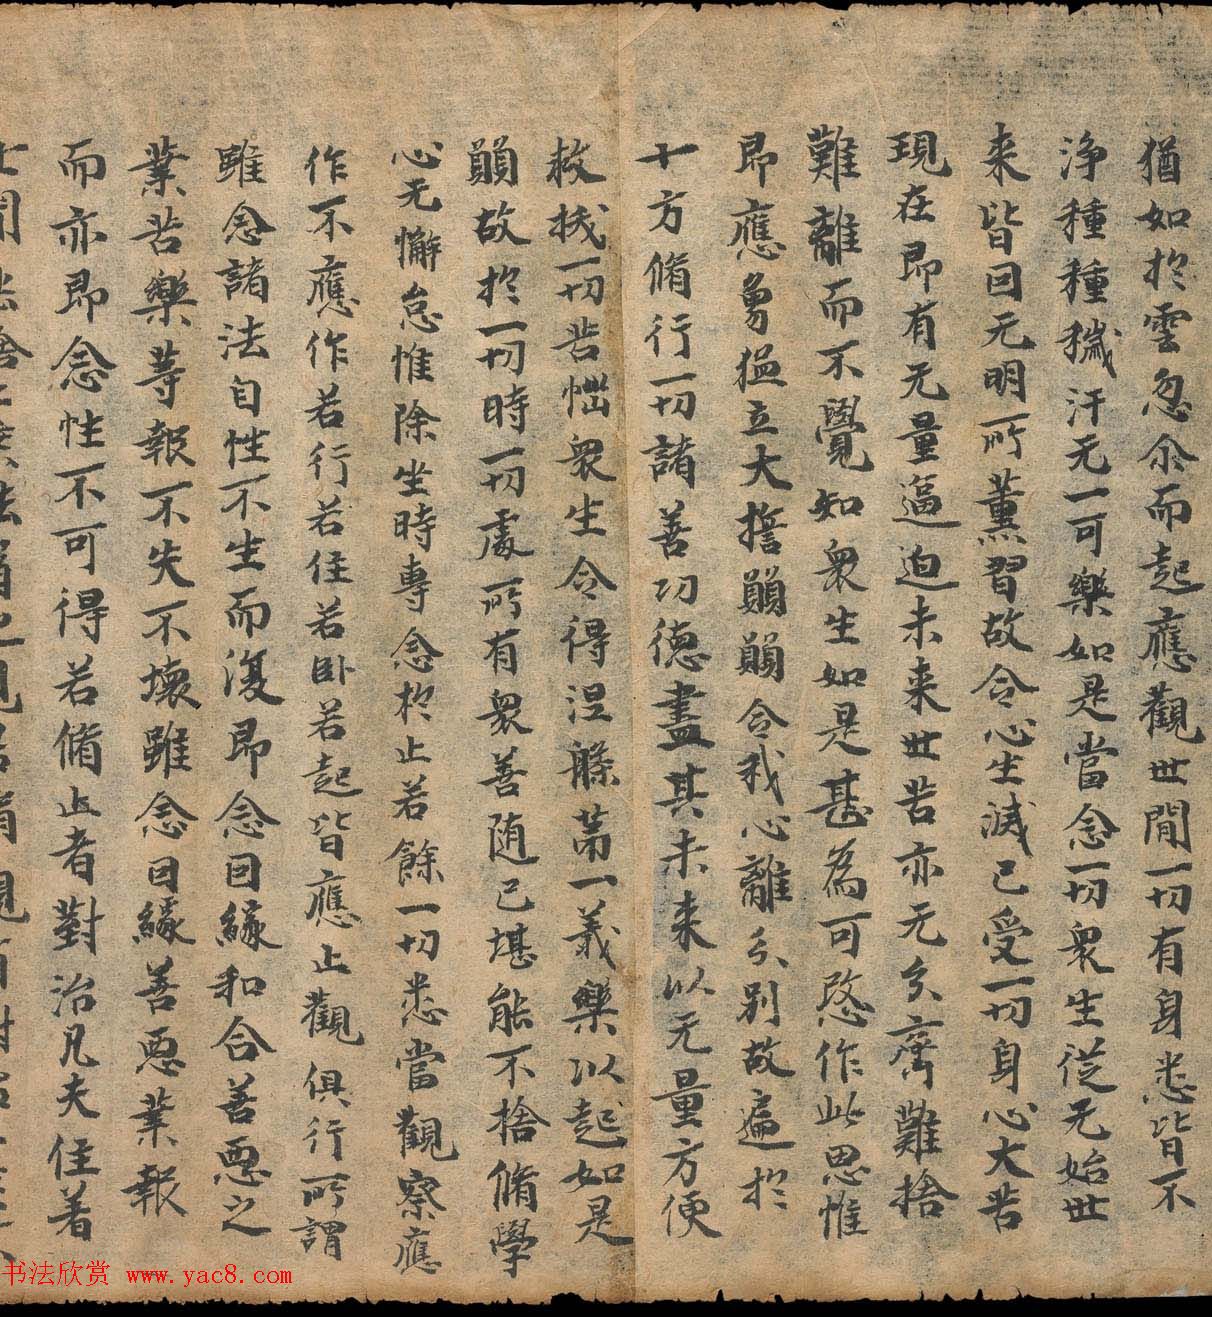 猶如於雲忽尒而起應觀世間一切有身悉皆不
淨種種穢汙无一可樂如是當念一切衆生従无始世
来皆因无明所薰習故令心生滅已受一切身心大苦
現在即有无量逼迫未来世苦亦无分齊難捨
難離而不覺如衆生如是甚為可愍作此思惟
即應勇猛立大擔願願令我心離分别故遍於
十方脩行一切諸善功德盡其未来以无量方便
救抜一切苦惱衆生令得涅槃苐一義樂以起如是
願故於一切時一切處所有衆善随已堪能不捨脩學
心无懈怠惟除坐時專念於止若餘一切悉當觀察應
作不應作若行若住若卧若起皆應止觀俱行所謂
雖念諸法自性不生而復即念因緣和合善惡之
業苦樂等報不失不壞雖念因緣善惡業報
而亦即念性不可得若脩止者對治凡夫住著
书法欣赏 www.yac8.com